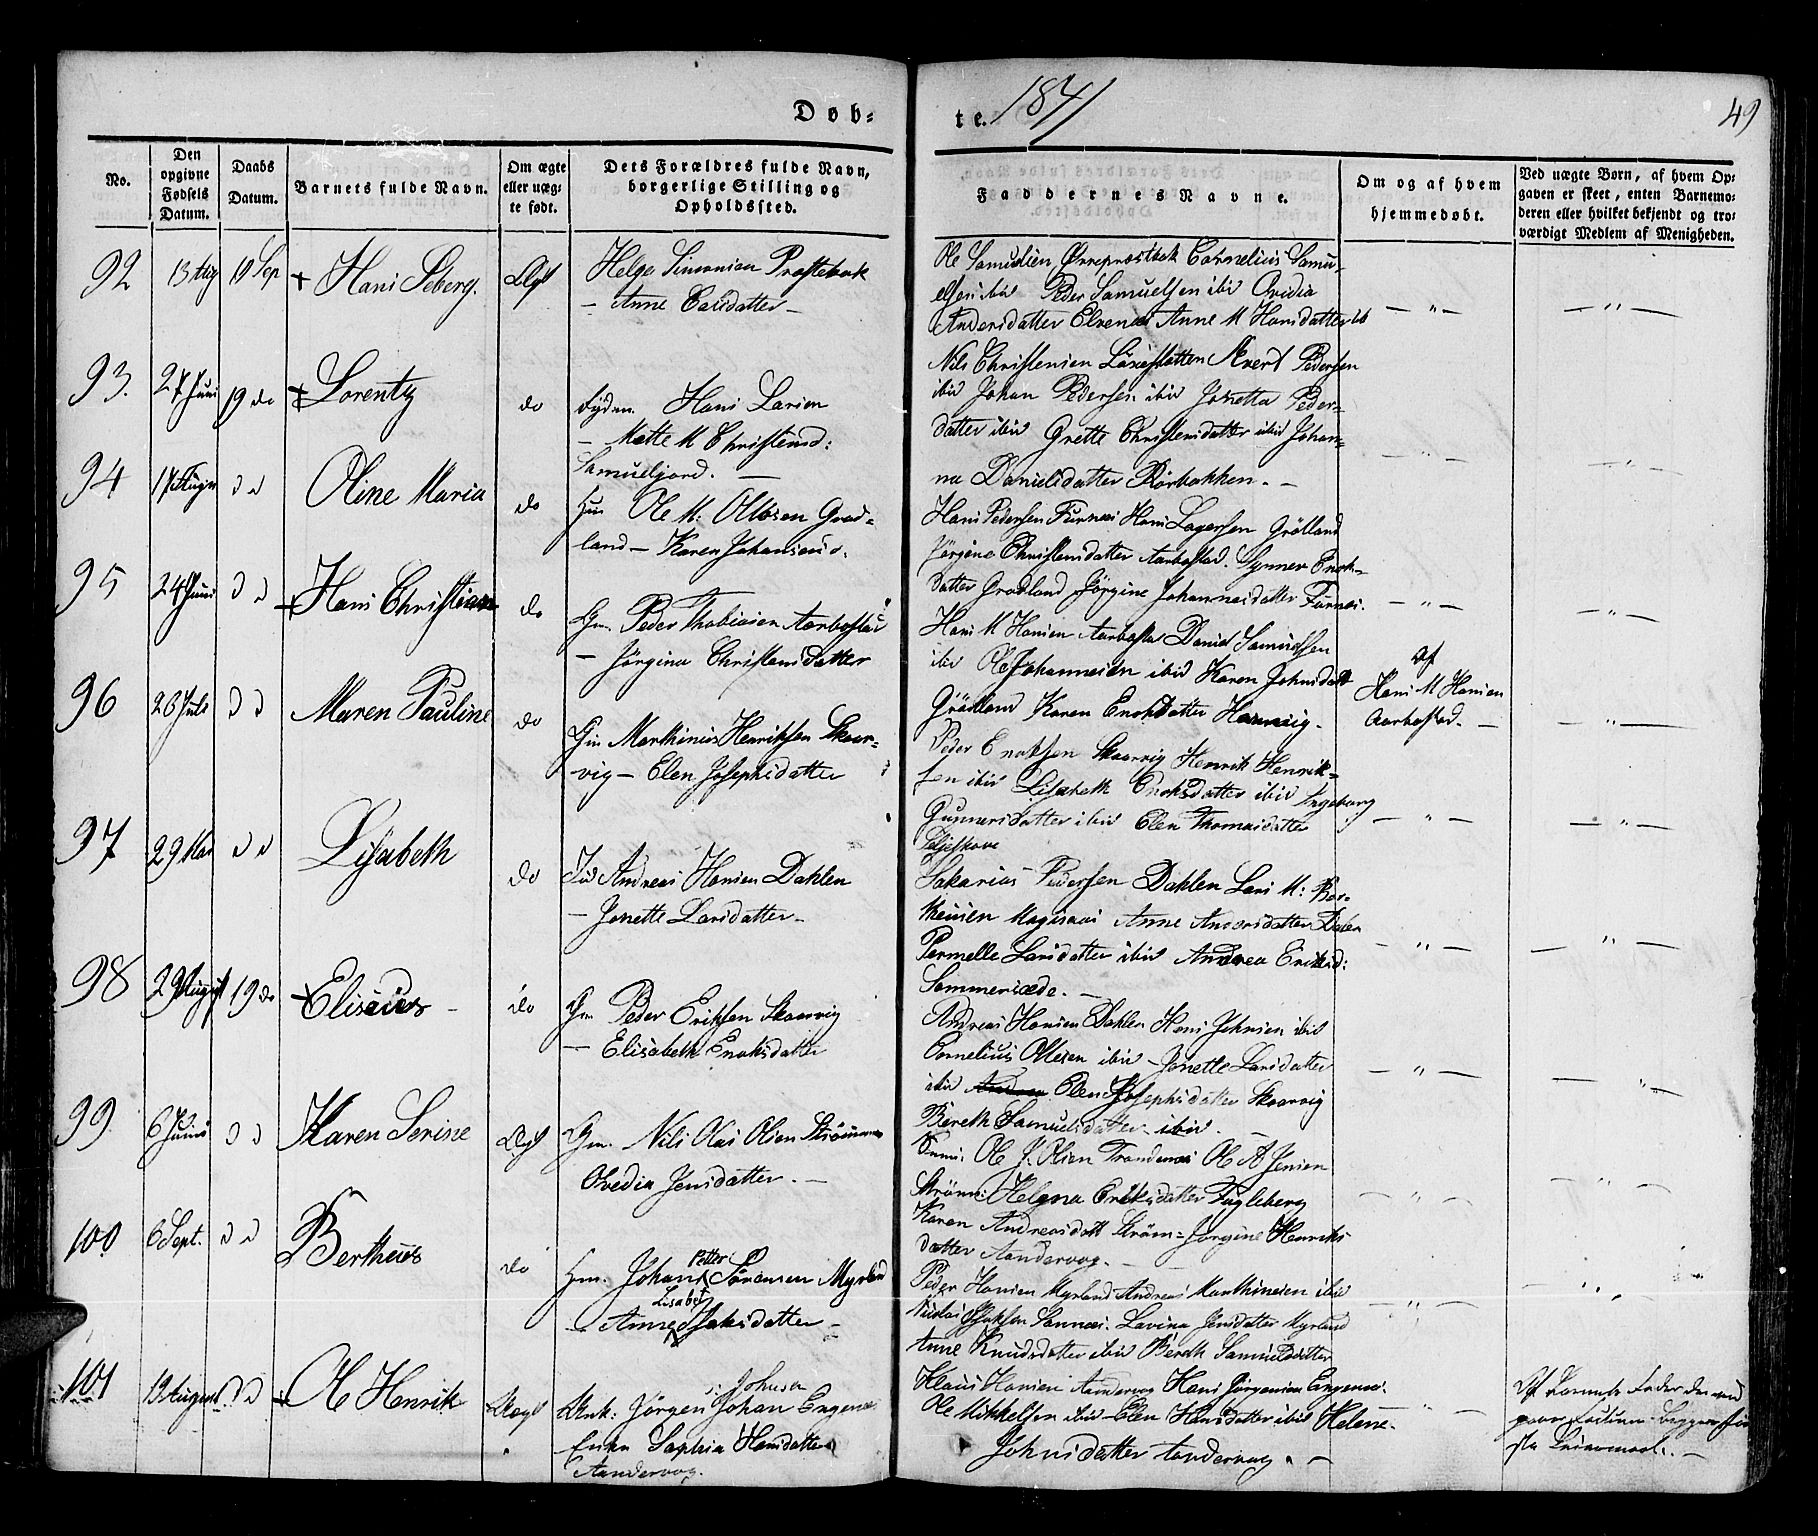 Døb-
te. 1841
49
No.
Den
opgivne
Fødsels
Datum.
Daabs
Datum.
Barnets fulde Navn.
Om ægte
eller uæg-
te født.
Dets Forældres fulde Navn,
borgerlige Stilling og
Opholdssted.
Faddernes Navne.
Om og af hvem
hjemmedøbt.
Ved uægte Børn, af hvem Op-
gaven er skeet, enten Barnemo-
deren eller hvilket bekjendt og tro-
værdigt Medlem af Menigheden.
92
13 Aug
19 Sep
Hans Seberg.
Ægt
Helge Simonsen Præstebak
– Anne Larsdatter –
Ole Samuelsen Ørreprestbak Cornelius Samu-
elsen ibid Peder Samuelsen ibid Ovidia
Andersdatter Elvenæs Anne M Hansdatter ib
– " –
– " –
93.
27 Juni
19 do
Lorentz
do
Hans Larsen
– Mette M Christensd:
Samueljord. –
Nils Christensen Evert Pedersen
ibid Johan Pedersen ibid Jonetta Peder-
datter ibid Grette Christensdatter ibid Johan-
na Danielsdatter Rørbakken. –
– " –
– " –
94
17 Augu
d d
Oline Maria
do
Ole M: Olsen Grad-
land – Karen Johansensd.
Hans Pedersen Furnæs Hans Lagesen Grølland
Jørgine Christensdatter Aarbostad. Synnev Enok-
datter Gradland Jørgine Johannesdatter Furnæs.
– " –
– " –
95
24 Juni
d d
Hans Christian
do
Gm. Peder Thobiasen Aarbostad
– Jørgina Christensdatter
Hans M Hansen Aarbostad Daniel Samuelsen
ibid Ole Johannesen ibid Karen Johnsdatt
Grøtland Karen Enoksdatter Hamnvig.
Af
Hans M Hansen
Aarbostad. –
– " –
96
26 Juli
d d
Maren Pauline
do
Gm Marthinus Henriksen Skaar-
vig – Elen Josephsdatter
Peder Enoksen Skaarvig Henrik Henrik-
sen ibid Lisabeth Enoksdatter ibid Ingeborg
Gunnersdatter ibid Elen Thomasdatter
– " –
– " –
97
29 Mai
d d
Lisabeth
do
Ind Andreas Hansen Dahlen
– Jonette Larsdatter –
Sakarias Pedersen Dahlen Lars M: Bar-
theusen Anne Andersdatter Dalen
Pernelle Larsdatter ibid Andrea Eriksd:
Sommersæde. –
– " –
– " –
98
29 August
19 do
Elisæus –
do
Gm Peder Eriksen Skaarvig
– Elisabeth Enoksdatter
Andreas Hansen Dahlen Hans Johnsen ibid
Cornelius Olsen ibid – Jonette Larsdatter
ibid Elen Josephsdatter Skaarvig
Bereth Samuelsdatter ibid. –
– " –
– " –
99
6 Juni
d d
Karen Serine
Ægt
Gm. Nils Olai Olsen
Ovedia Jensdatter. –
Ole J. Olsen Trondenæs Ole A Jensen
Strøm: Helena Eriksdatter Fugleberg
Karen Andreasdatt Strøm – Jørgine Henriks
datter Aandervog. –
– " –
– " –
100
6 Sept.
d d
Bertheus
do
Hm. Johan Petter Sørensen Myrland
– Anne Lisabet Isaksdatter –
Peder Hansen Myrland Andreas Marthinsen ibid
Nikolai Isaksen Sannæs. Lavina Jensdatter Myrland
Anne Knudsdatter ibid Bereth Samuelsdatter
– " –
– " –
101
19 August
d d
Ole Henrik
Uægt
Unk: Jørgen Johan Johnsen Engenæs
Enke Sophia Hansdatter
Aandervog.
Klaus Hansen Aandervog Hans Jørgensen Engenæs.
Ole Mikkelsen ibid – Elen Hansdatter ibid Helene.
Johnsdatter Aandervog. –
– " –
Af Barnets Fader